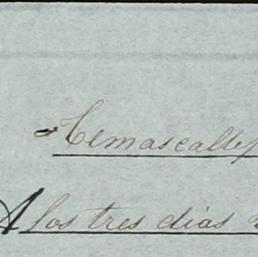 Temascaltep
A los tres dias